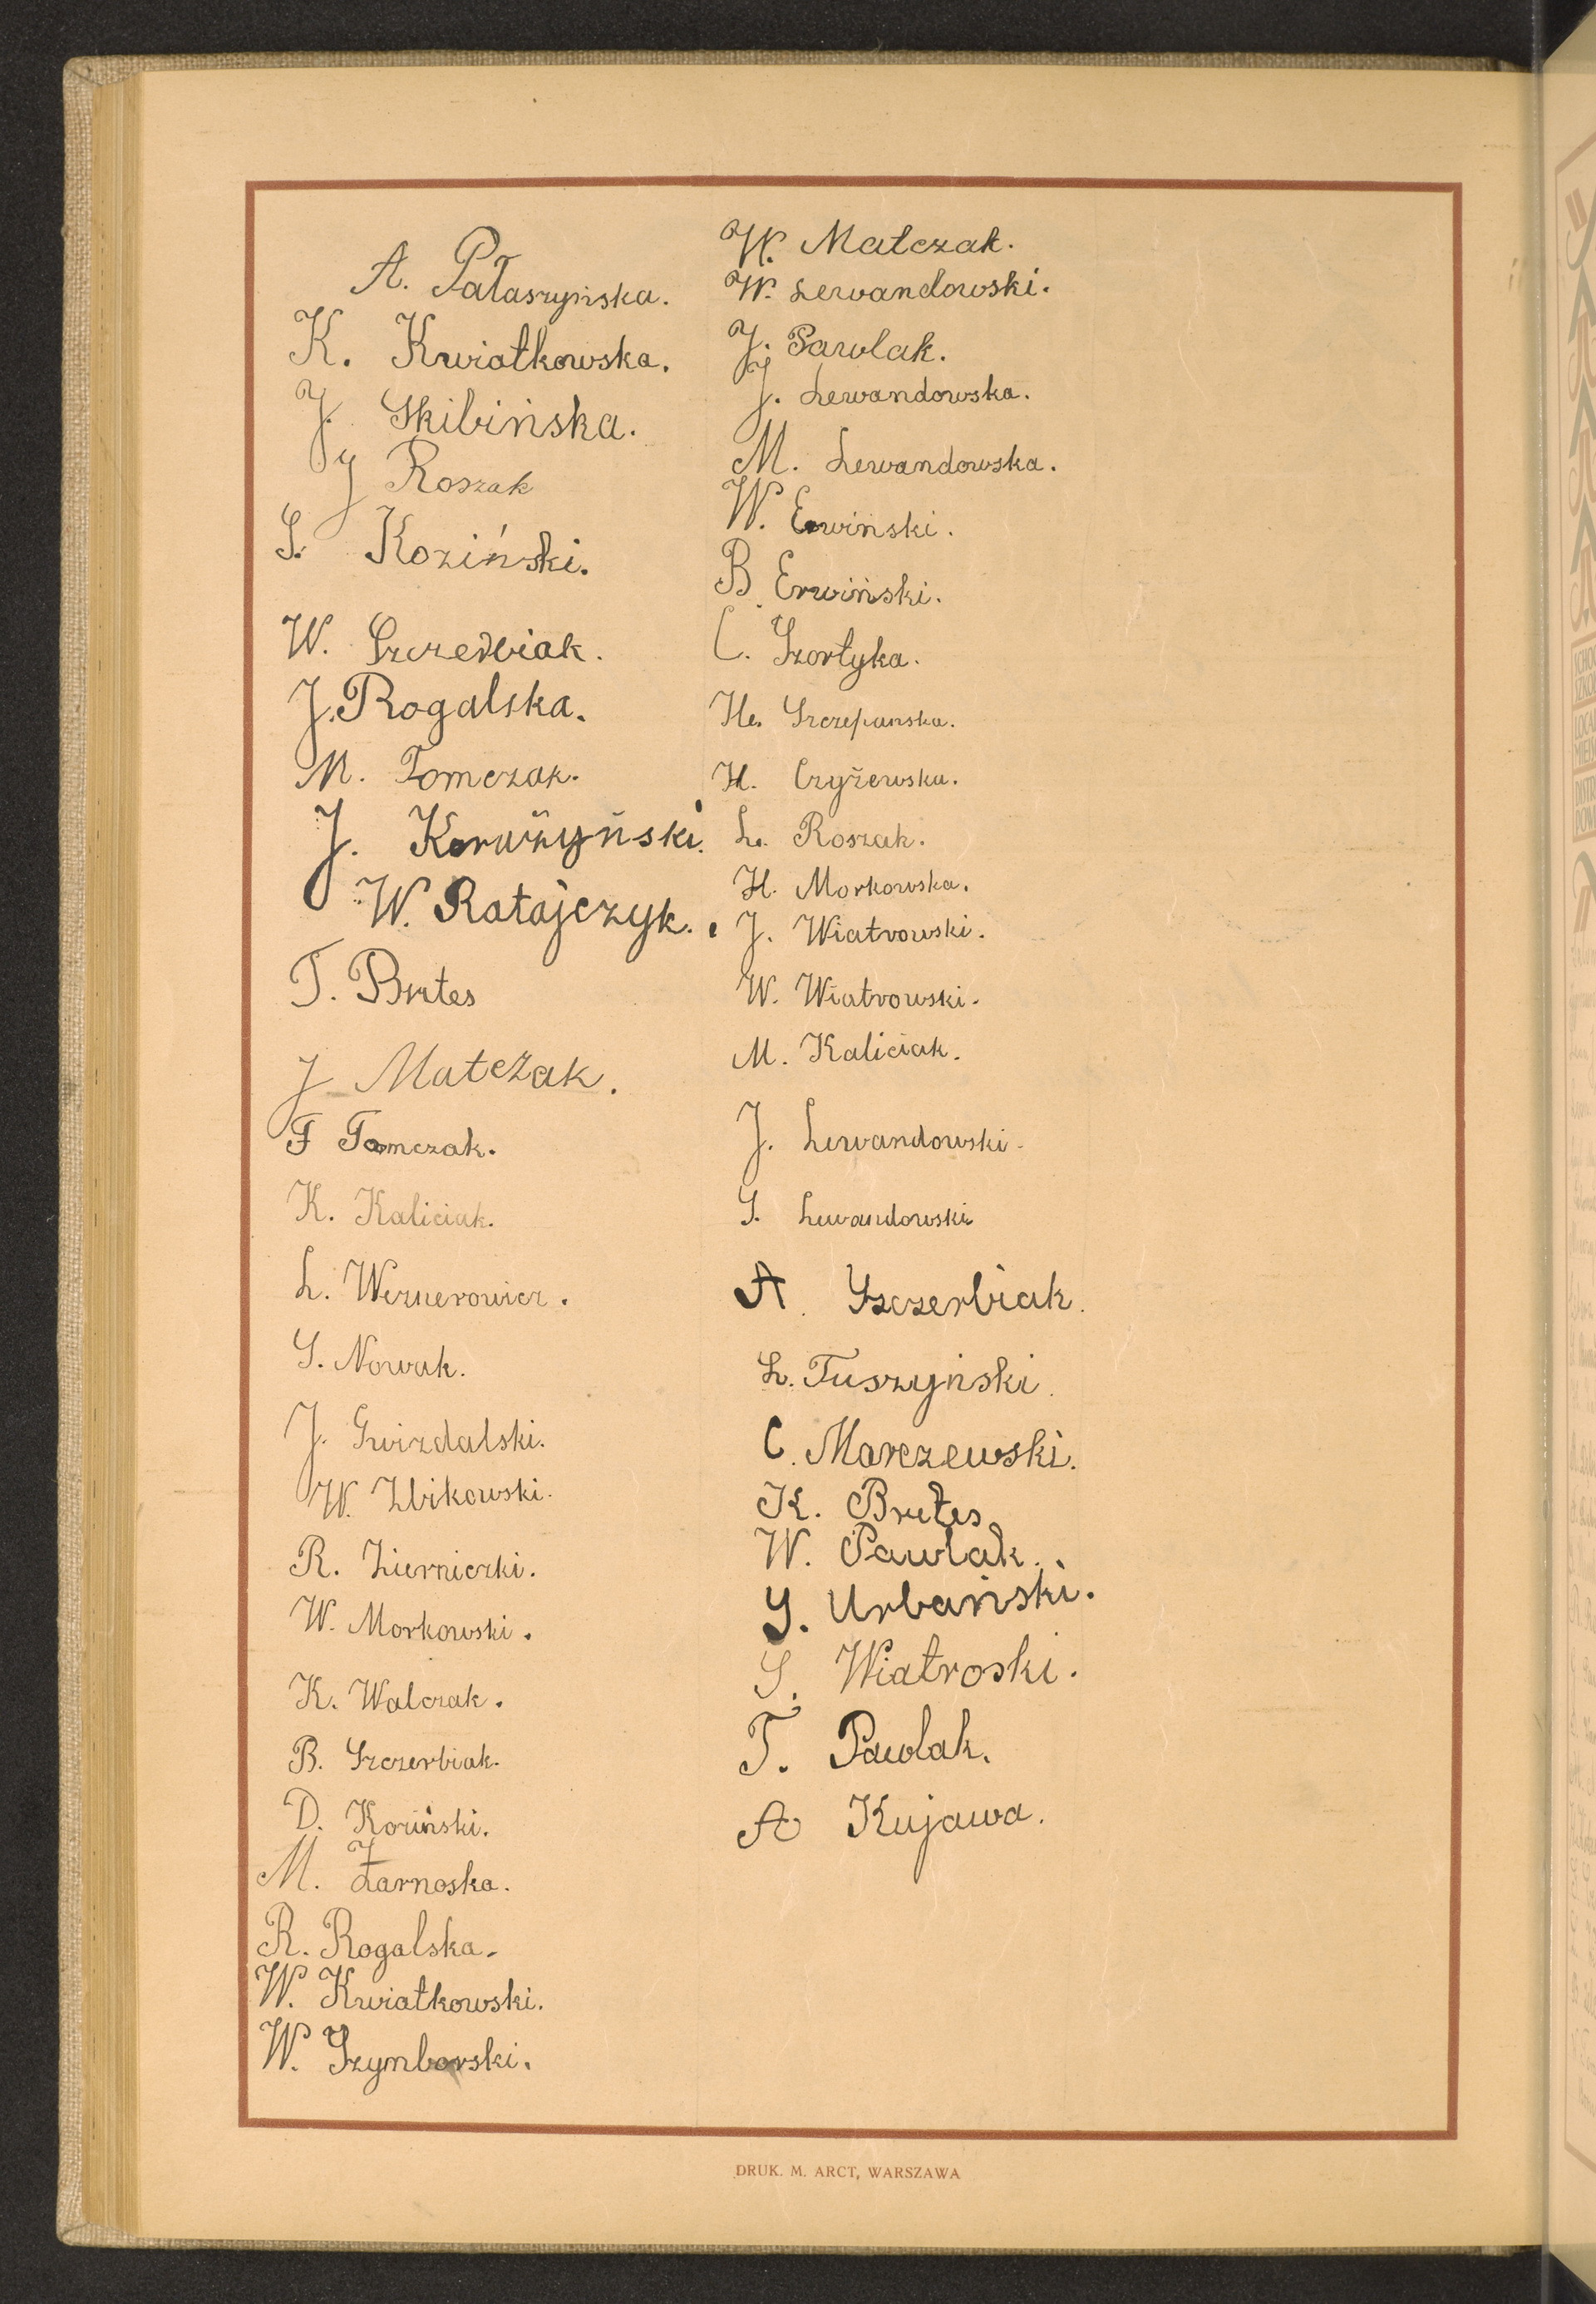 A. Pałaszyńska.
K. Kwiatkowska.
J. Skibińska.
J Roszak
S. Koziński.
W. Szczerbiak.
J. Rogalska.
M. Tomczak.
J. Korużyński.
W. Ratajczyk.
T. Brutes
J Matczak.
F Tomczak.
K. Kaliciak.
L. Weznerowicz.
S. Nowak.
J. Gwizdalski.
W. Zbikowski.
R. Zierniczki.
W. Morkowski.
K. Walczak.
B. Szczerbiak.
D. Koziński.
M. Żarnoska.
R. Rogalska.
W. Kwiatkowski.
W. Szymborski.
W. Matczak.
W. Lewandowski.
J. Pawlak.
J. Lewandowska.
M. Lewandowska.
W. Erwiński.
B. Erwiński.
C. Szortyka.
He. Szczepanska.
H. Czyżewska.
L. Roszak.
H. Morkowska.
J. Wiatrowski.
W. Wiatrowski.
M. Kaliciak.
J. Lewandowski.
S. Lewandowski
A. Szczerbiak.
L. Tuszyński.
C. Marczewski.
K. Brutes
W. Pawlak.
S. Urbański.
S. Wiatroski.
T. Pawlak.
A Kujawa.
DRUK. M. ARCT, WARSZAWA